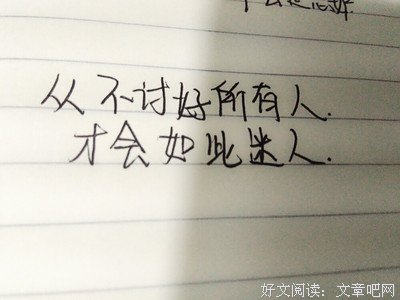 从不讨好所有人.
才会如此迷人.
好文阅读：文章吧网